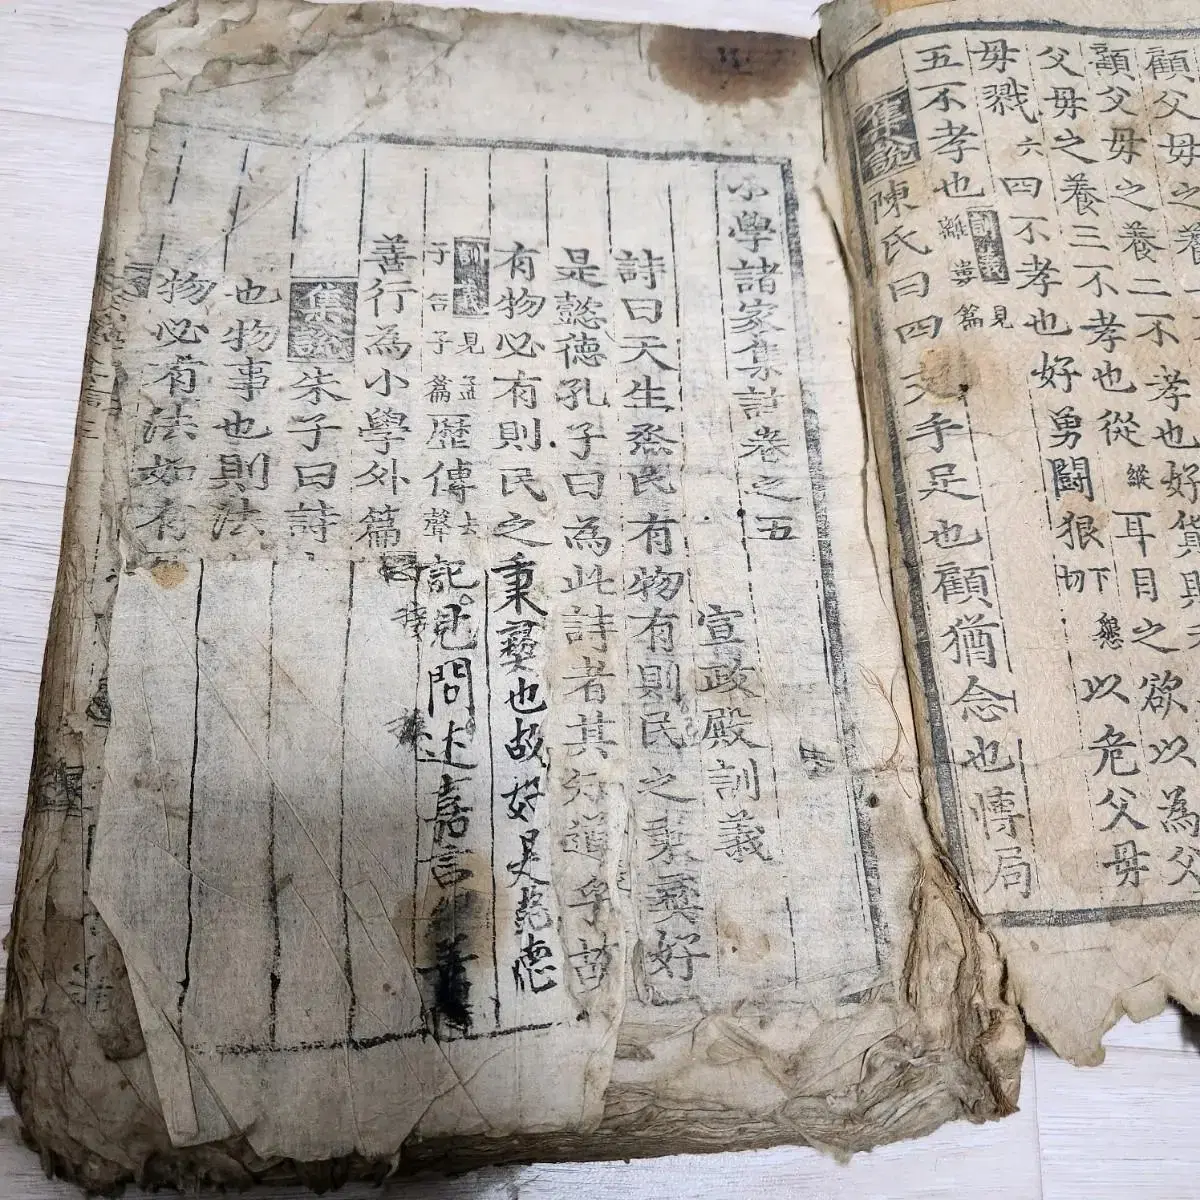 顧父毋之養
顧父毋之養二不孝也好貨
父毋之養三不孝也從縱耳目之欲以為父
毋戮六四不孝也好勇鬪狠下懇切以危父毋
五不孝也訓義見離婁篇
集說陳氏曰四支手足也顧猶念也慱局
小學諸家集註卷之五
宣政殿訓義
詩曰天生烝民有物有則民之秉彝好
是懿德孔子曰為此詩者其知道乎故
有物必有則民之秉彝也故好是懿德
訓義見孟子告子篇歷傳去聲記見問述嘉言
善行為小學外篇
集說朱子曰詩
也物事也則法
物必有法如有